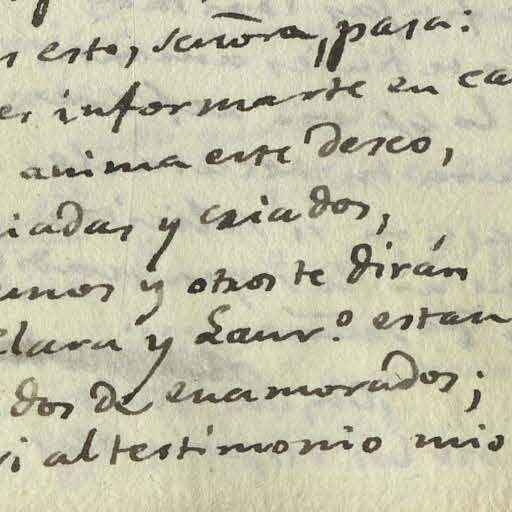 s esto, señora, pasa:
es informarte en ca
anima este deseo,
iadas y criados,
unos y otros te dirán
Clara y Laur.º estan
dos de enamorados;
si al testimonio mio